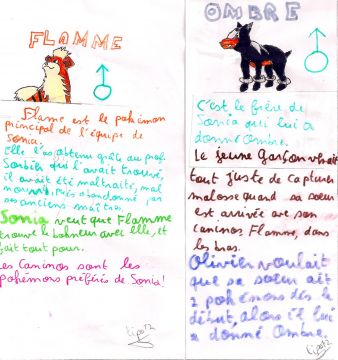 FLAMME
Flame est le pokémon
principal de l'équipe de
Sonia.
Elle l'as obtenu grâce au prof
Sorbier qui l'avait trouvé,
il avait été maltraité, mal
nourri. Près abandonné par
ses anciens maîtres.
Sonia veut que Flamme
trouve le bohneur avec elle, et
fait tout pour.
Les Caninos sont les
pokémons préférés de Sonia!
OMBRE
C'est le frère de
Sonia qui lui a
donné Ombre.
Le jeune garçon venait
tout juste de capturer
malosse quand sa soeur
est arrivée avec son
caninos Flamme, dans
les bras.
Olivier voulait
que sa soeur ait
2 pokémons dès le
début, alors il lui
a donné Ombre.